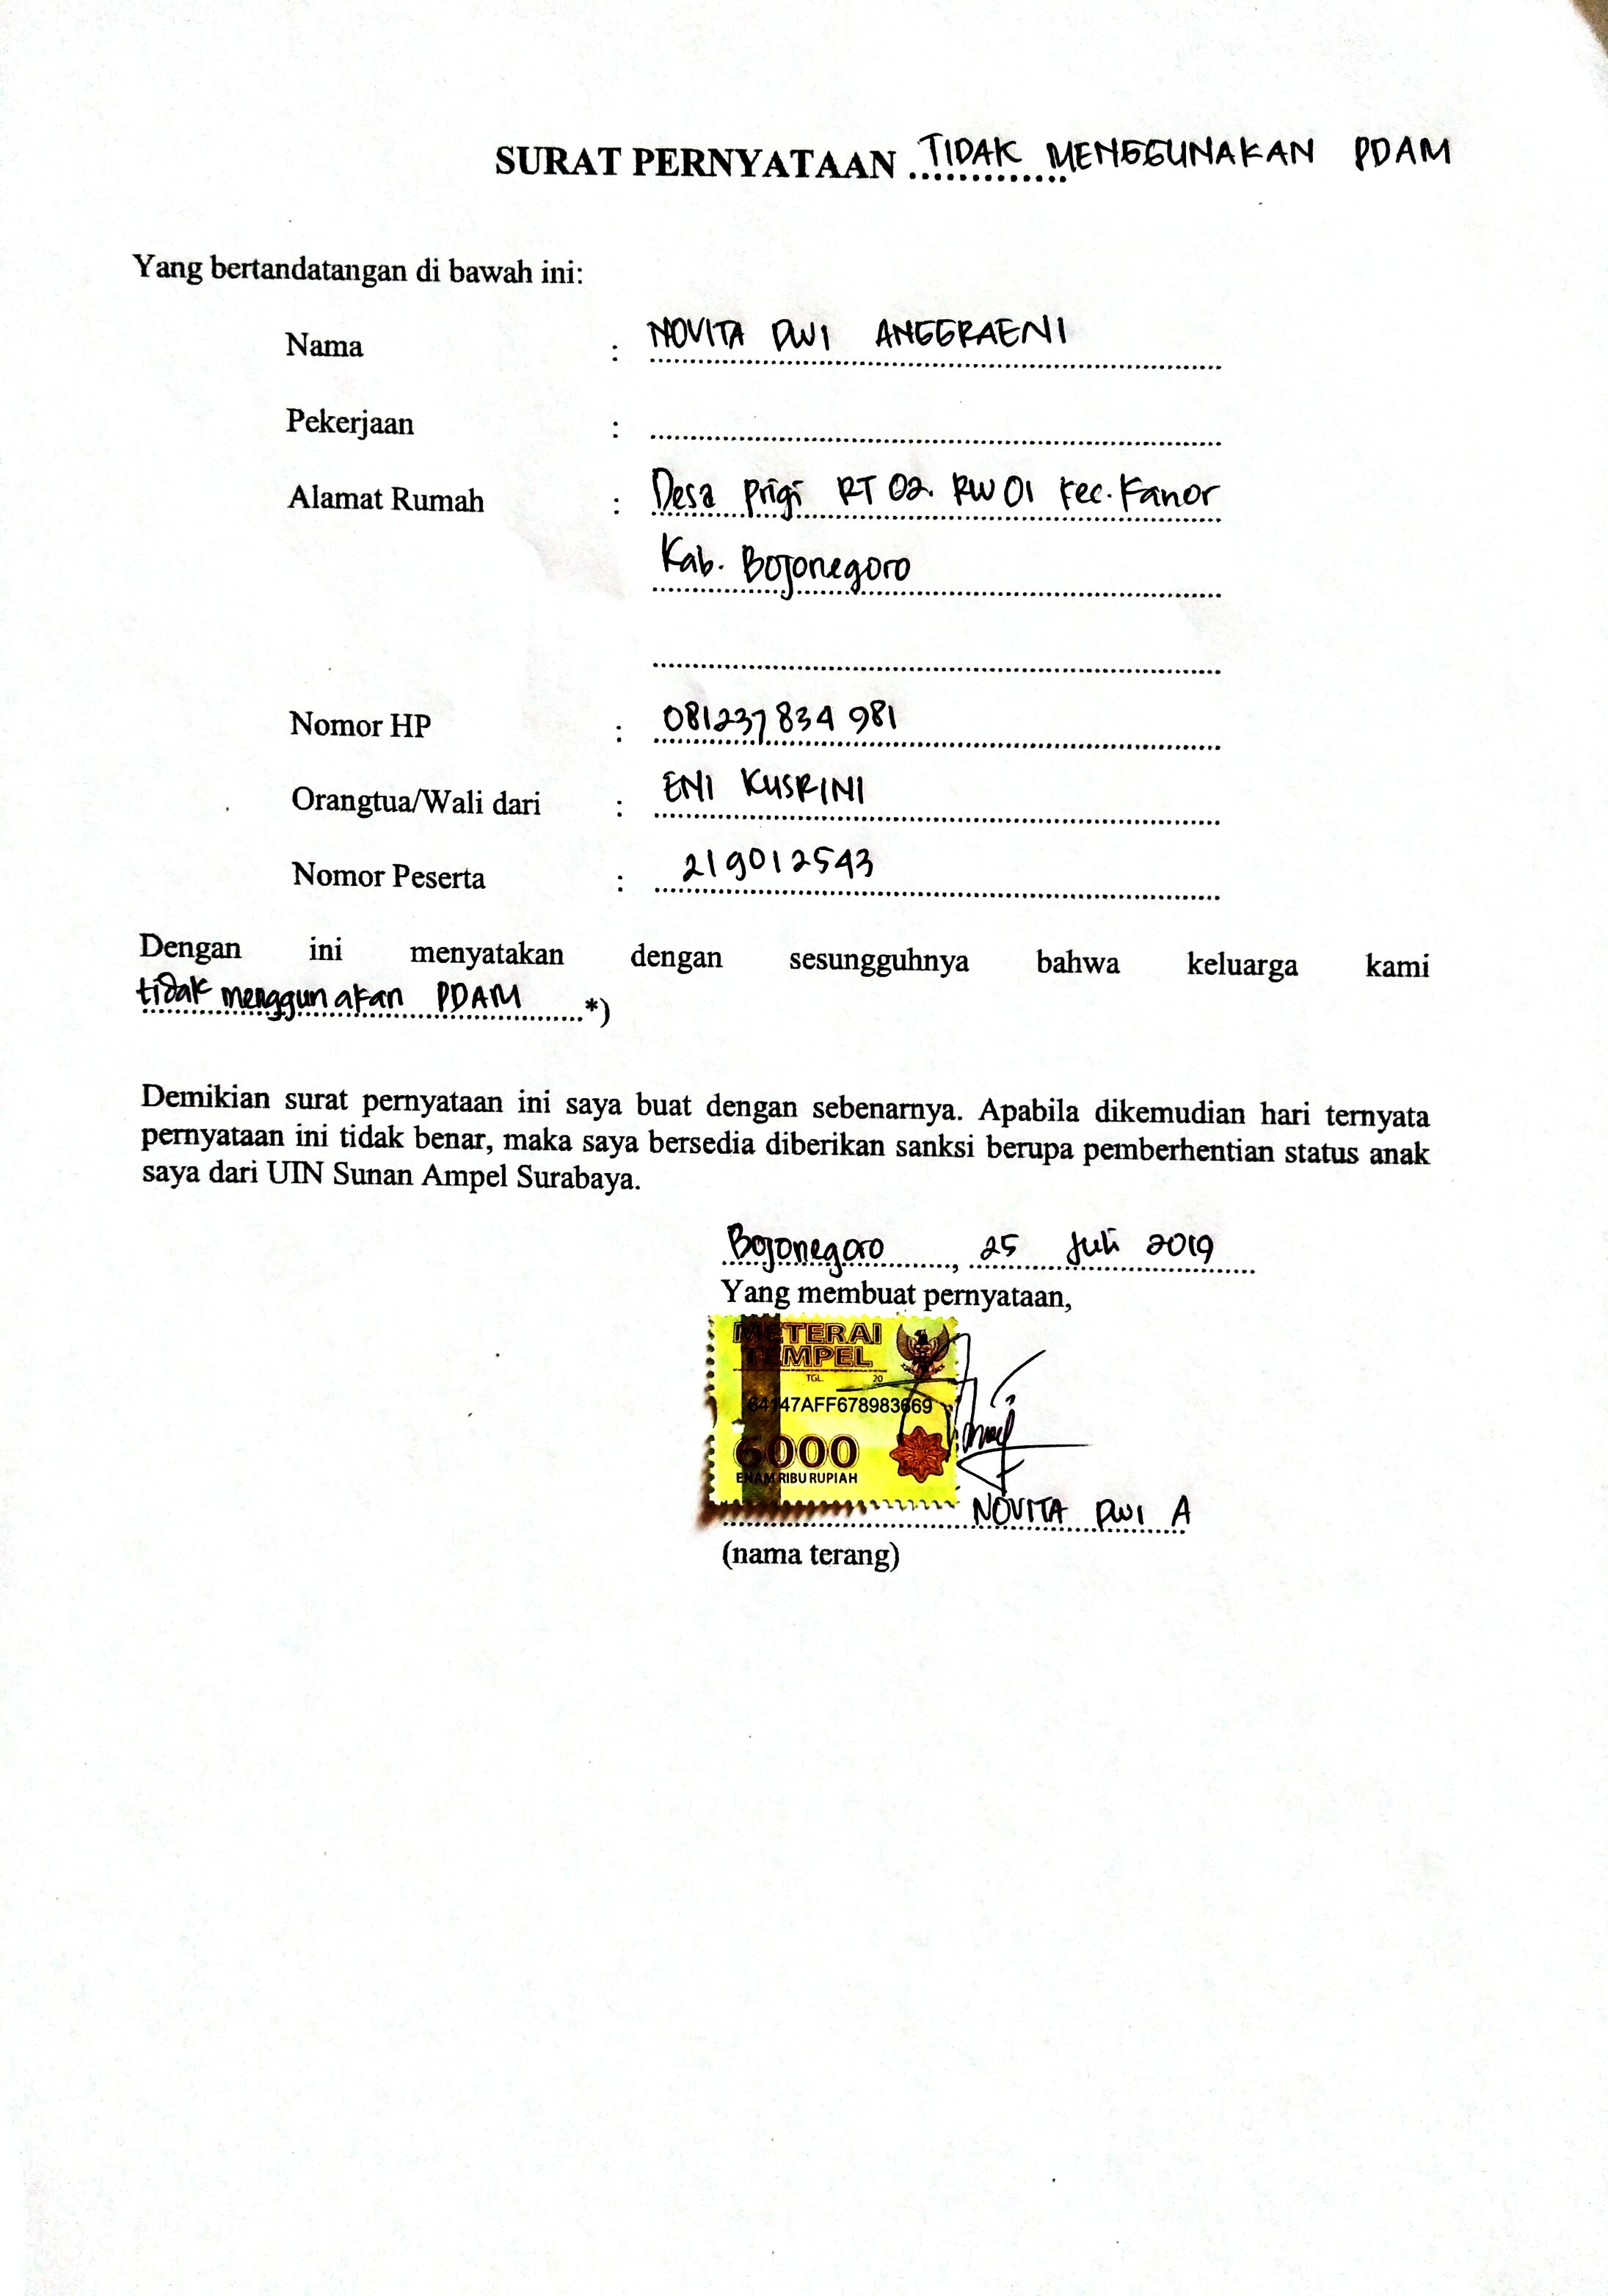 SURAT PERNYATAAN TIDAK MENGGUNAKAN PDAM
Yang bertandatangan di bawah ini:
Nama : NOVITA DWI ANGGRAENI
Pekerjaan :
Alamat Rumah : Desa Prigi RT 02 RW 01 Kec. Kanor
Kab. Bojonegoro
Nomor HP : 081237834981
Orangtua/Wali dari : ENI KUSRINI
Nomor Peserta : 219012543
Dengan ini menyatakan dengan sesungguhnya bahwa keluarga kami
tidak menggunakan PDAM *)
Demikian surat pernyataan ini saya buat dengan sebenarnya. Apabila dikemudian hari ternyata
pernyataan ini tidak benar, maka saya bersedia diberikan sanksi berupa pemberhentian status anak
saya dari UIN Sunan Ampel Surabaya.
Bojonegoro, 25 Juli 2019
Yang membuat pernyataan,
METERAI
TEMPEL
TGL. 20
64147AFF678983669
6000
ENAM RIBU RUPIAH
NOVITA DWI A
(nama terang)